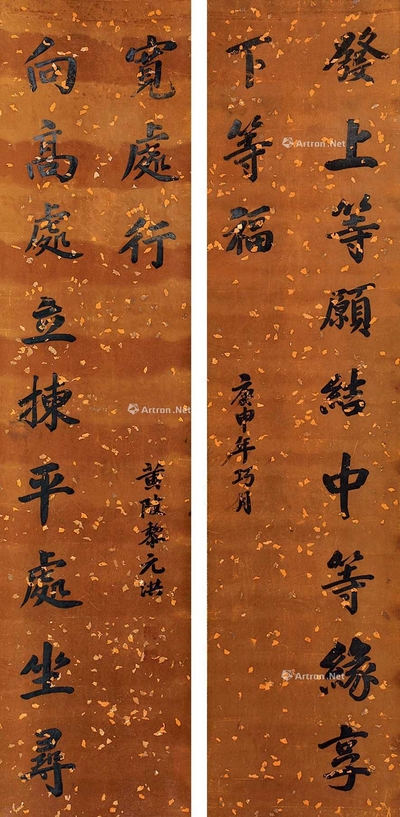 發上等願結中等緣享
下等福
庚申年巧月
向高處立揀平處坐尋
寬處行
黃陂黎元洪
Artron.Net
Artron.Net
Artron.Net